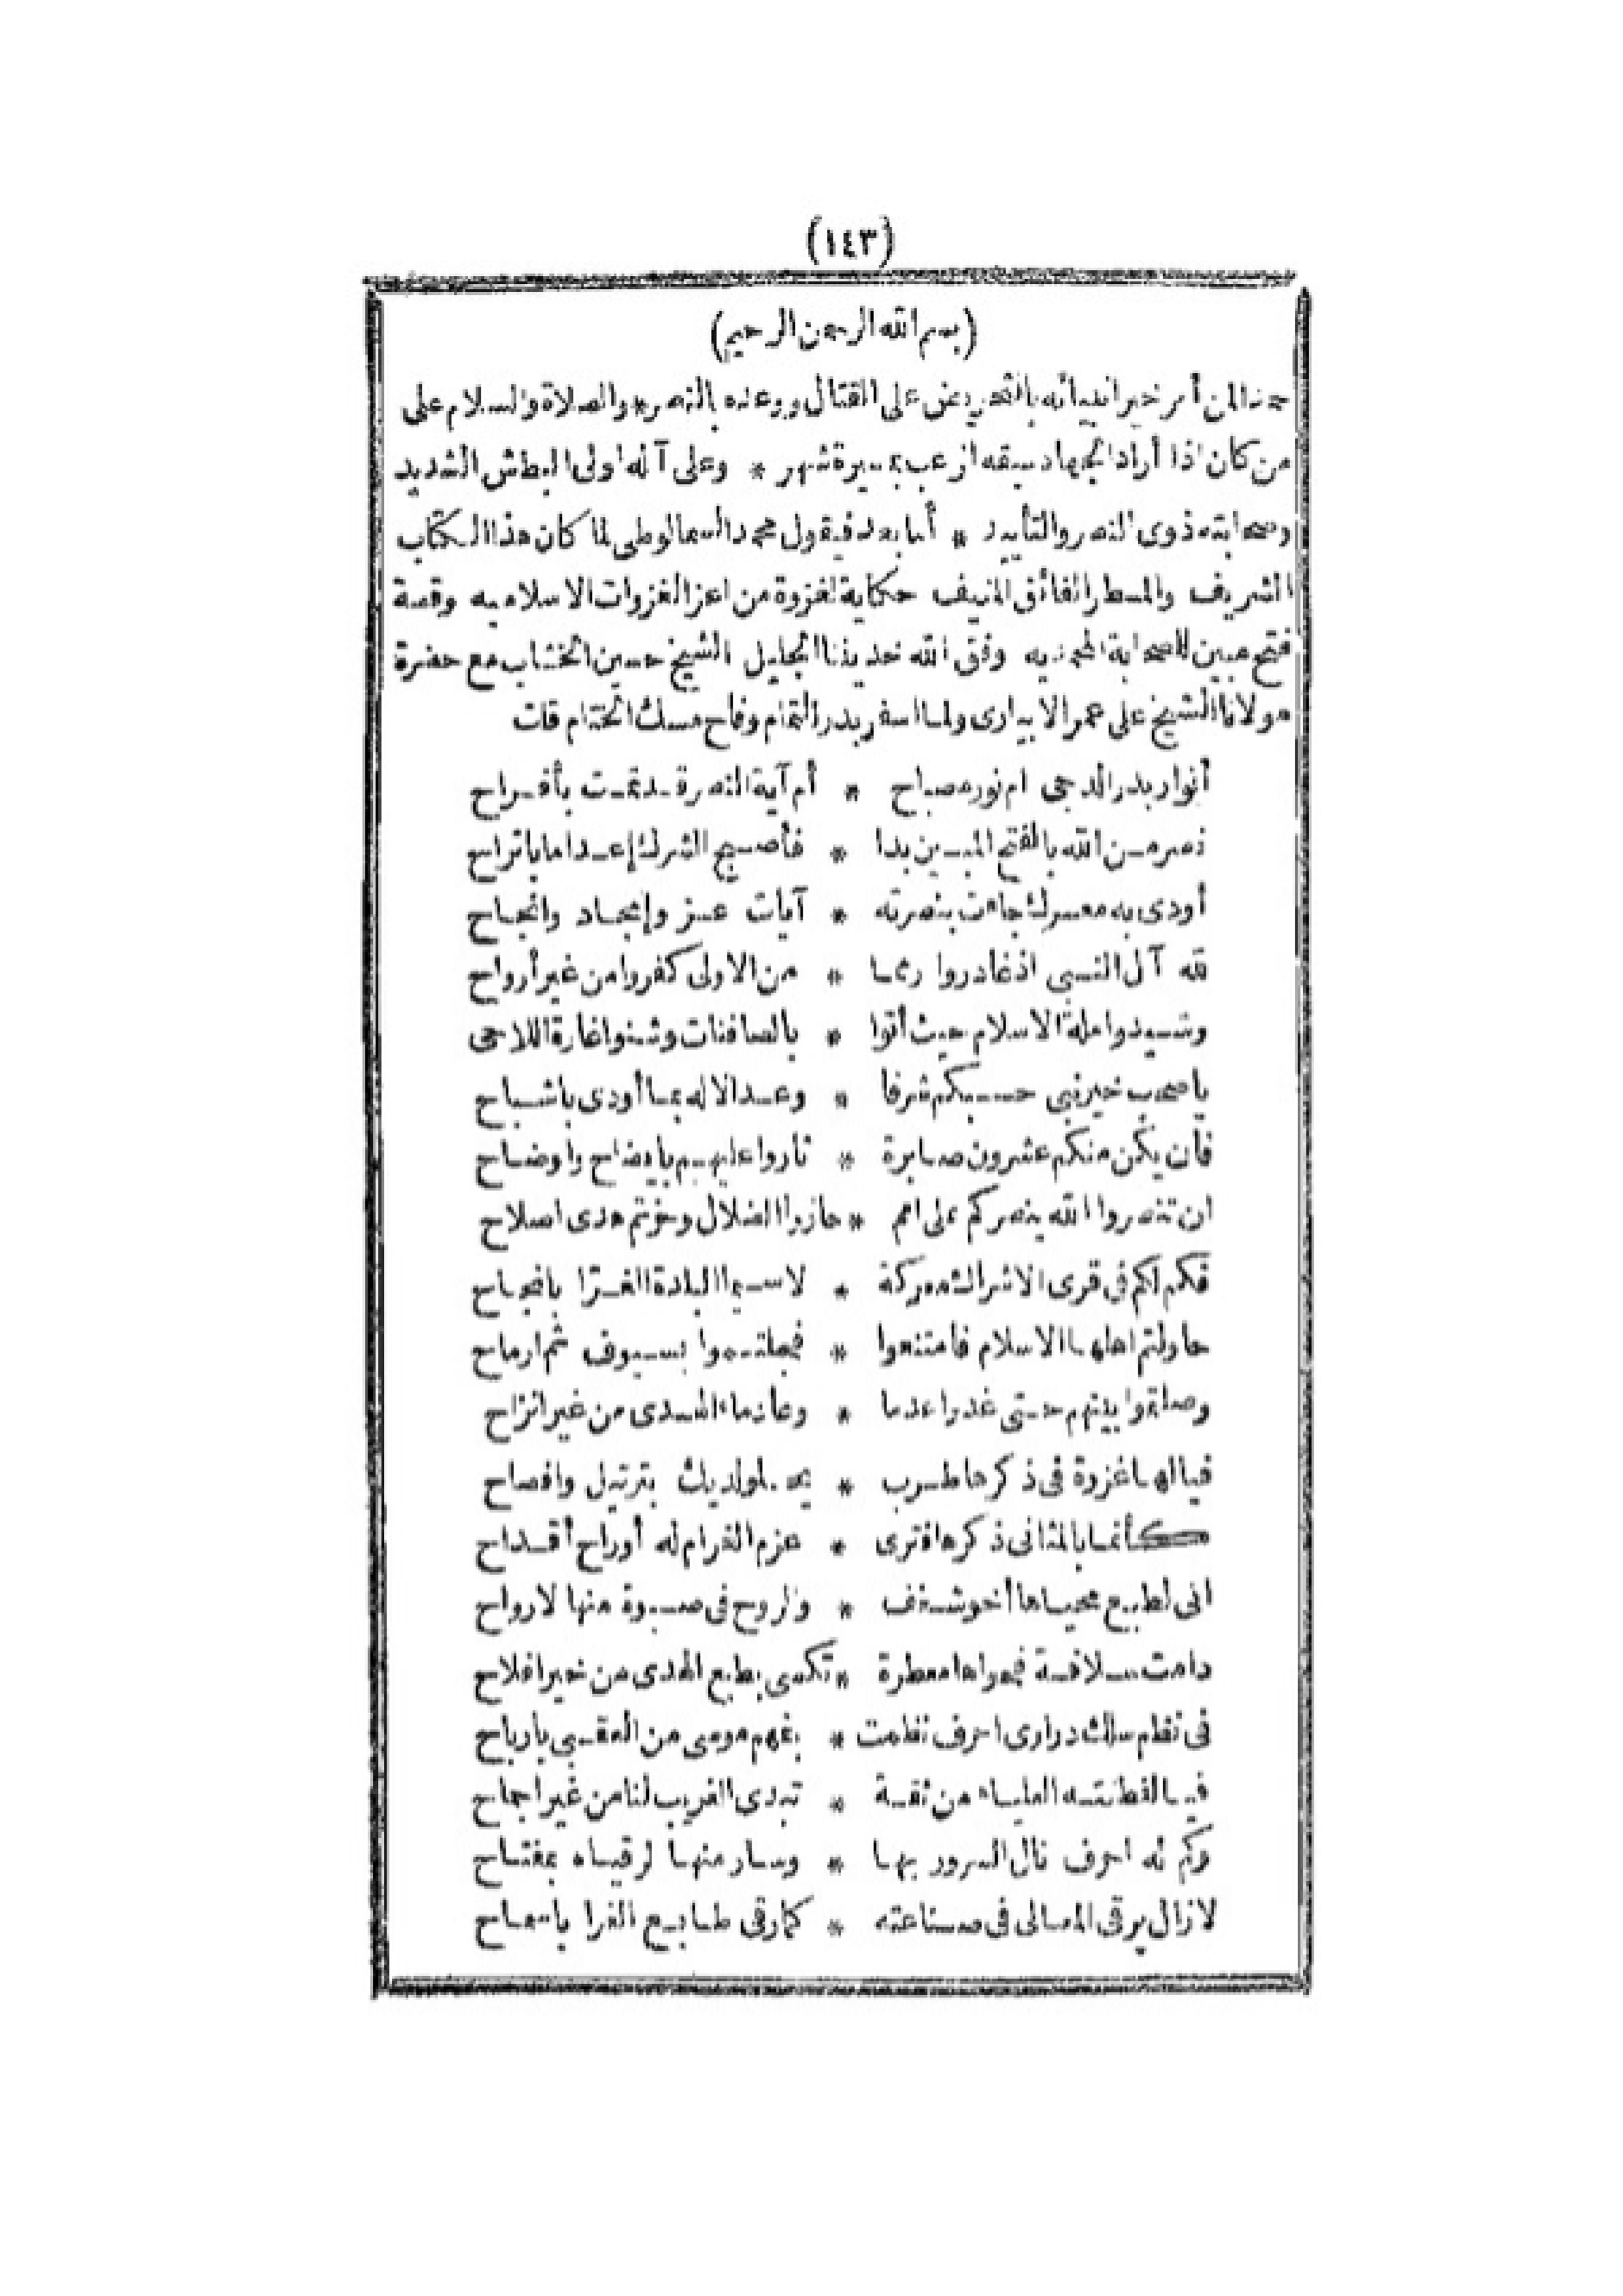 (١٤٣)
(بسم الله الرحمن الرحيم)
حمدا لمن أمر خير انبيائه بالتحريض على القتال ووعده بالنصر * والصلاة والسلام على
من كان اذا أراد الجهاد سبقه الرعب بمسيرة شهر * وعلى آله اولى البطش الشديد
وصحابته ذوى النصر والتأييد * أما بعد فيقول محمد السمالوطى لما كان هذا الكتاب
الشريف والمسطر الفائق المنيف حكاية لغزوة من اعز الغزوات الاسلاميه وقصة
فتح مبين للصحابة المحمديه وفق الله تحديدنا الجليل الشيخ حسين الخشاب مع حضرة
مولانا الشيخ على عمر الابيارى ولما اسفر بدر التمام وفاح مسك الختام قلت
أنوار بدر الدجى ام نور مصباح * أم آية النصر قد تمت بأفراح
نصر من الله بالفتح المبين بدا * فأصبح الشرك إعداما باتراح
أودى به معسرك جاءت بنصرته * آيات عز وإيجاد وانجاح
لله آل النبي اذ غادروا رمما * من الاولى كفروا من غير أرواح
وشيدوا ملة الاسلام حيث أتوا * بالصافنات وشنوا غارة اللاحى
يا صحب خير نبى حسبكم شرفا * وعد الاله بما أودى باشباح
فان يكن منكم عشرون صابرة * ثاروا عليهم بايضاح واوضاح
ان تنصروا الله ينصركم على امم * حازوا الضلال وحزتم هدى اصلاح
فكم لكم فى قرى الاشراك معركة * لاسيما البلدة الغرا بانجاح
حاولتم اهلها الاسلام فامتنعوا * فجلتموا بسيوف ثم ارماح
وصلتموا بينهم حتى غدوا عدما * وعاد ماء الهدى من غير انزاح
فيالها غزوة فى ذكرها طرب * يحلو لديك بترتيل وافصاح
كأنما بالمثانى ذكرها افترى * عزم الغرام له أوراح أقداح
انى لطبع محياها أخو شغف * والروح فى صبوة منها لارواح
دامت سلافة فحواها معطرة * تكسى بطبع الهدى من خير افلاح
فى نظم سلك درارى احرف نظمت * بفهم مومى من العقبى بارباح
فيا لفطنته العلياء من ثقة * تبدى الغريب لنا من غير اجماح
وكم له احرف نال السرور بها * وسار منها لرقياه بمفتاح
لازال يرقى المعالى فى صناعته * كما رقى طابع الغرا بامعاح